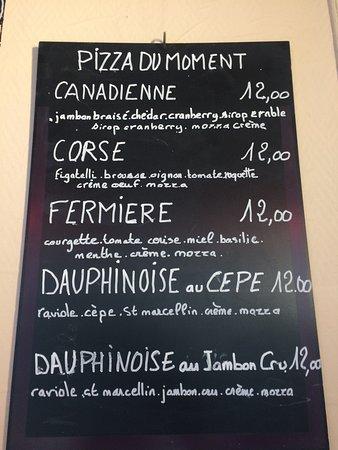 PIZZA DU MOMENT
CANADIENNE 12,00
.jambon braisé.chedar.cranberry.sirop erable
sirop cranberry. mozza crème
CORSE 12,00
Figatelli. brousse.oignon.tomate.roquette
crème oeuf. mozza
FERMIERE 12,00
courgette.tomate cerise.miel.basilic.
menthe. crème.mozza.
DAUPHINOISE au CEPE 12.00
raviole.cèpe.St marcellin.crème.mozza
DAUPHINOISE au Jambon Cru 12,00
raviole.st marcellin.jambon.cru.crème.mozza